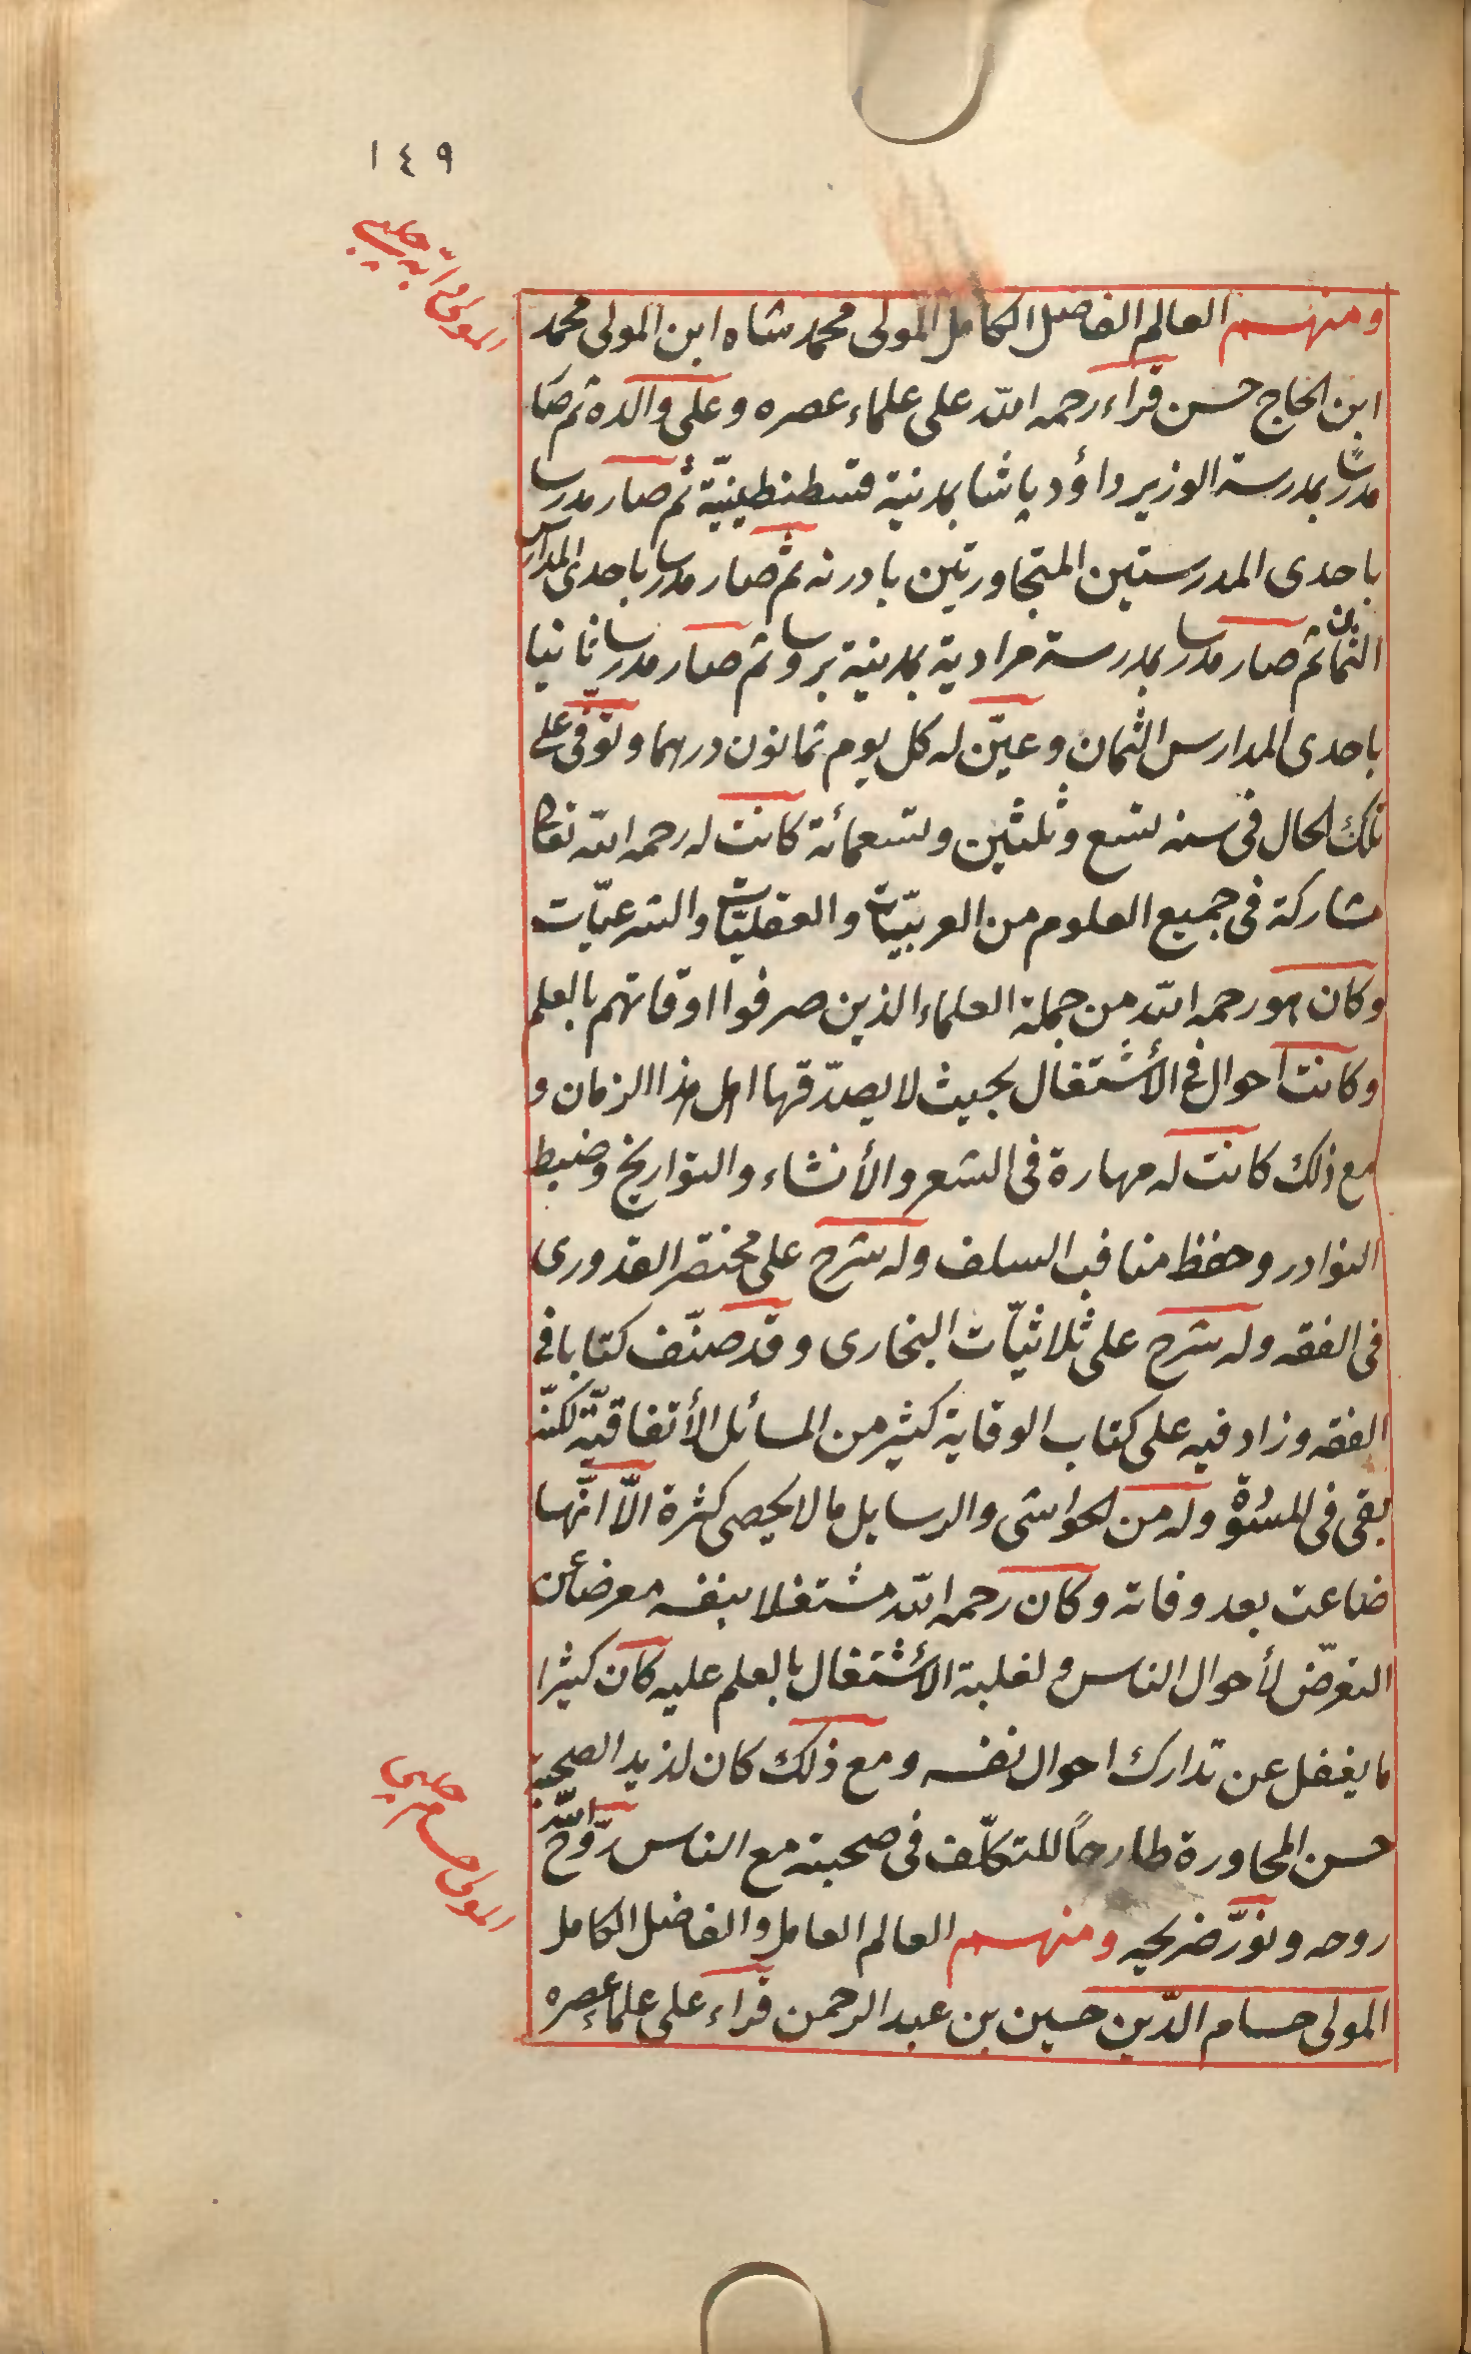 ١٤٩
ومنهم العالم الفاضل الكامل المولى محمد شاه ابن المولى محمد
ابن الحاج حسن قراء رحمه الله على علماء عصره وعلى والده ثم صا
مدرسًا بمدرسة الوزير داؤد پاشا بمدنية قسطنطينيّة ثم صار مدرسا
باحدى المدرستين المتجاورتين بادرنه ثم صار مدرسا باحدى المدارس
الثمان ثم صار مدرسا بمدرسة مرادية بمدينة بروسا ثم صار مدرسا ثانيا
باحدى المدارس الثمان وعيّن له كل يوم ثمانون درهما وتوّفى على
تلك الحال فى سنه تسع وثلثين وتسعمائة كانت له رحمه الله تعالى
مشاركة فى جميع العلوم من العربيّات والعقليّات والشرعيّات
وكان هو رحمه الله من جملة العلماء الذين صرفوا اوقاتهم بالعلم
وكانت احوال فى الأشتغال بحيث لا يصدّقها اهل هذا الزمان و
مع ذلك كانت له مهارة فى الشعر والأنشاء والتواريخ وضبط
النوادر وحفظ مناقب السلف وله شرح على مختصر القدورى
فى الفقه وله شرح على ثلاثيّات البخارى وقد صنّف كتابا فى
الفقه وزاد فيه على كتاب الوقاية كثير من المسائل الأتفاقيّة لكنّه
بقى فى المسوّدة وله من الحواشى والرسايل ما لا يحصى كثرة الّا انّها
ضاعت بعد وفاته وكان رحمه الله مشتغلا بنفسه معرضا عن
التعرّض لأحوال الناس و لغلبة الأشتغال بالعلم عليه كان كثيرا
ما يغفل عن تدارك احوال نفسه ومع ذلك كان لذيد الصحبة
حسن المحاورة طارحاً للتكلّف فى صحبته مع الناس روّح الله
روحه ونوّر ضريحه ومنهم العالم العامل والفاضل الكامل
المولى حسام الدّين حسين بن عبد الرحمن قراء على علماء عصره
المولى حسام چلبى